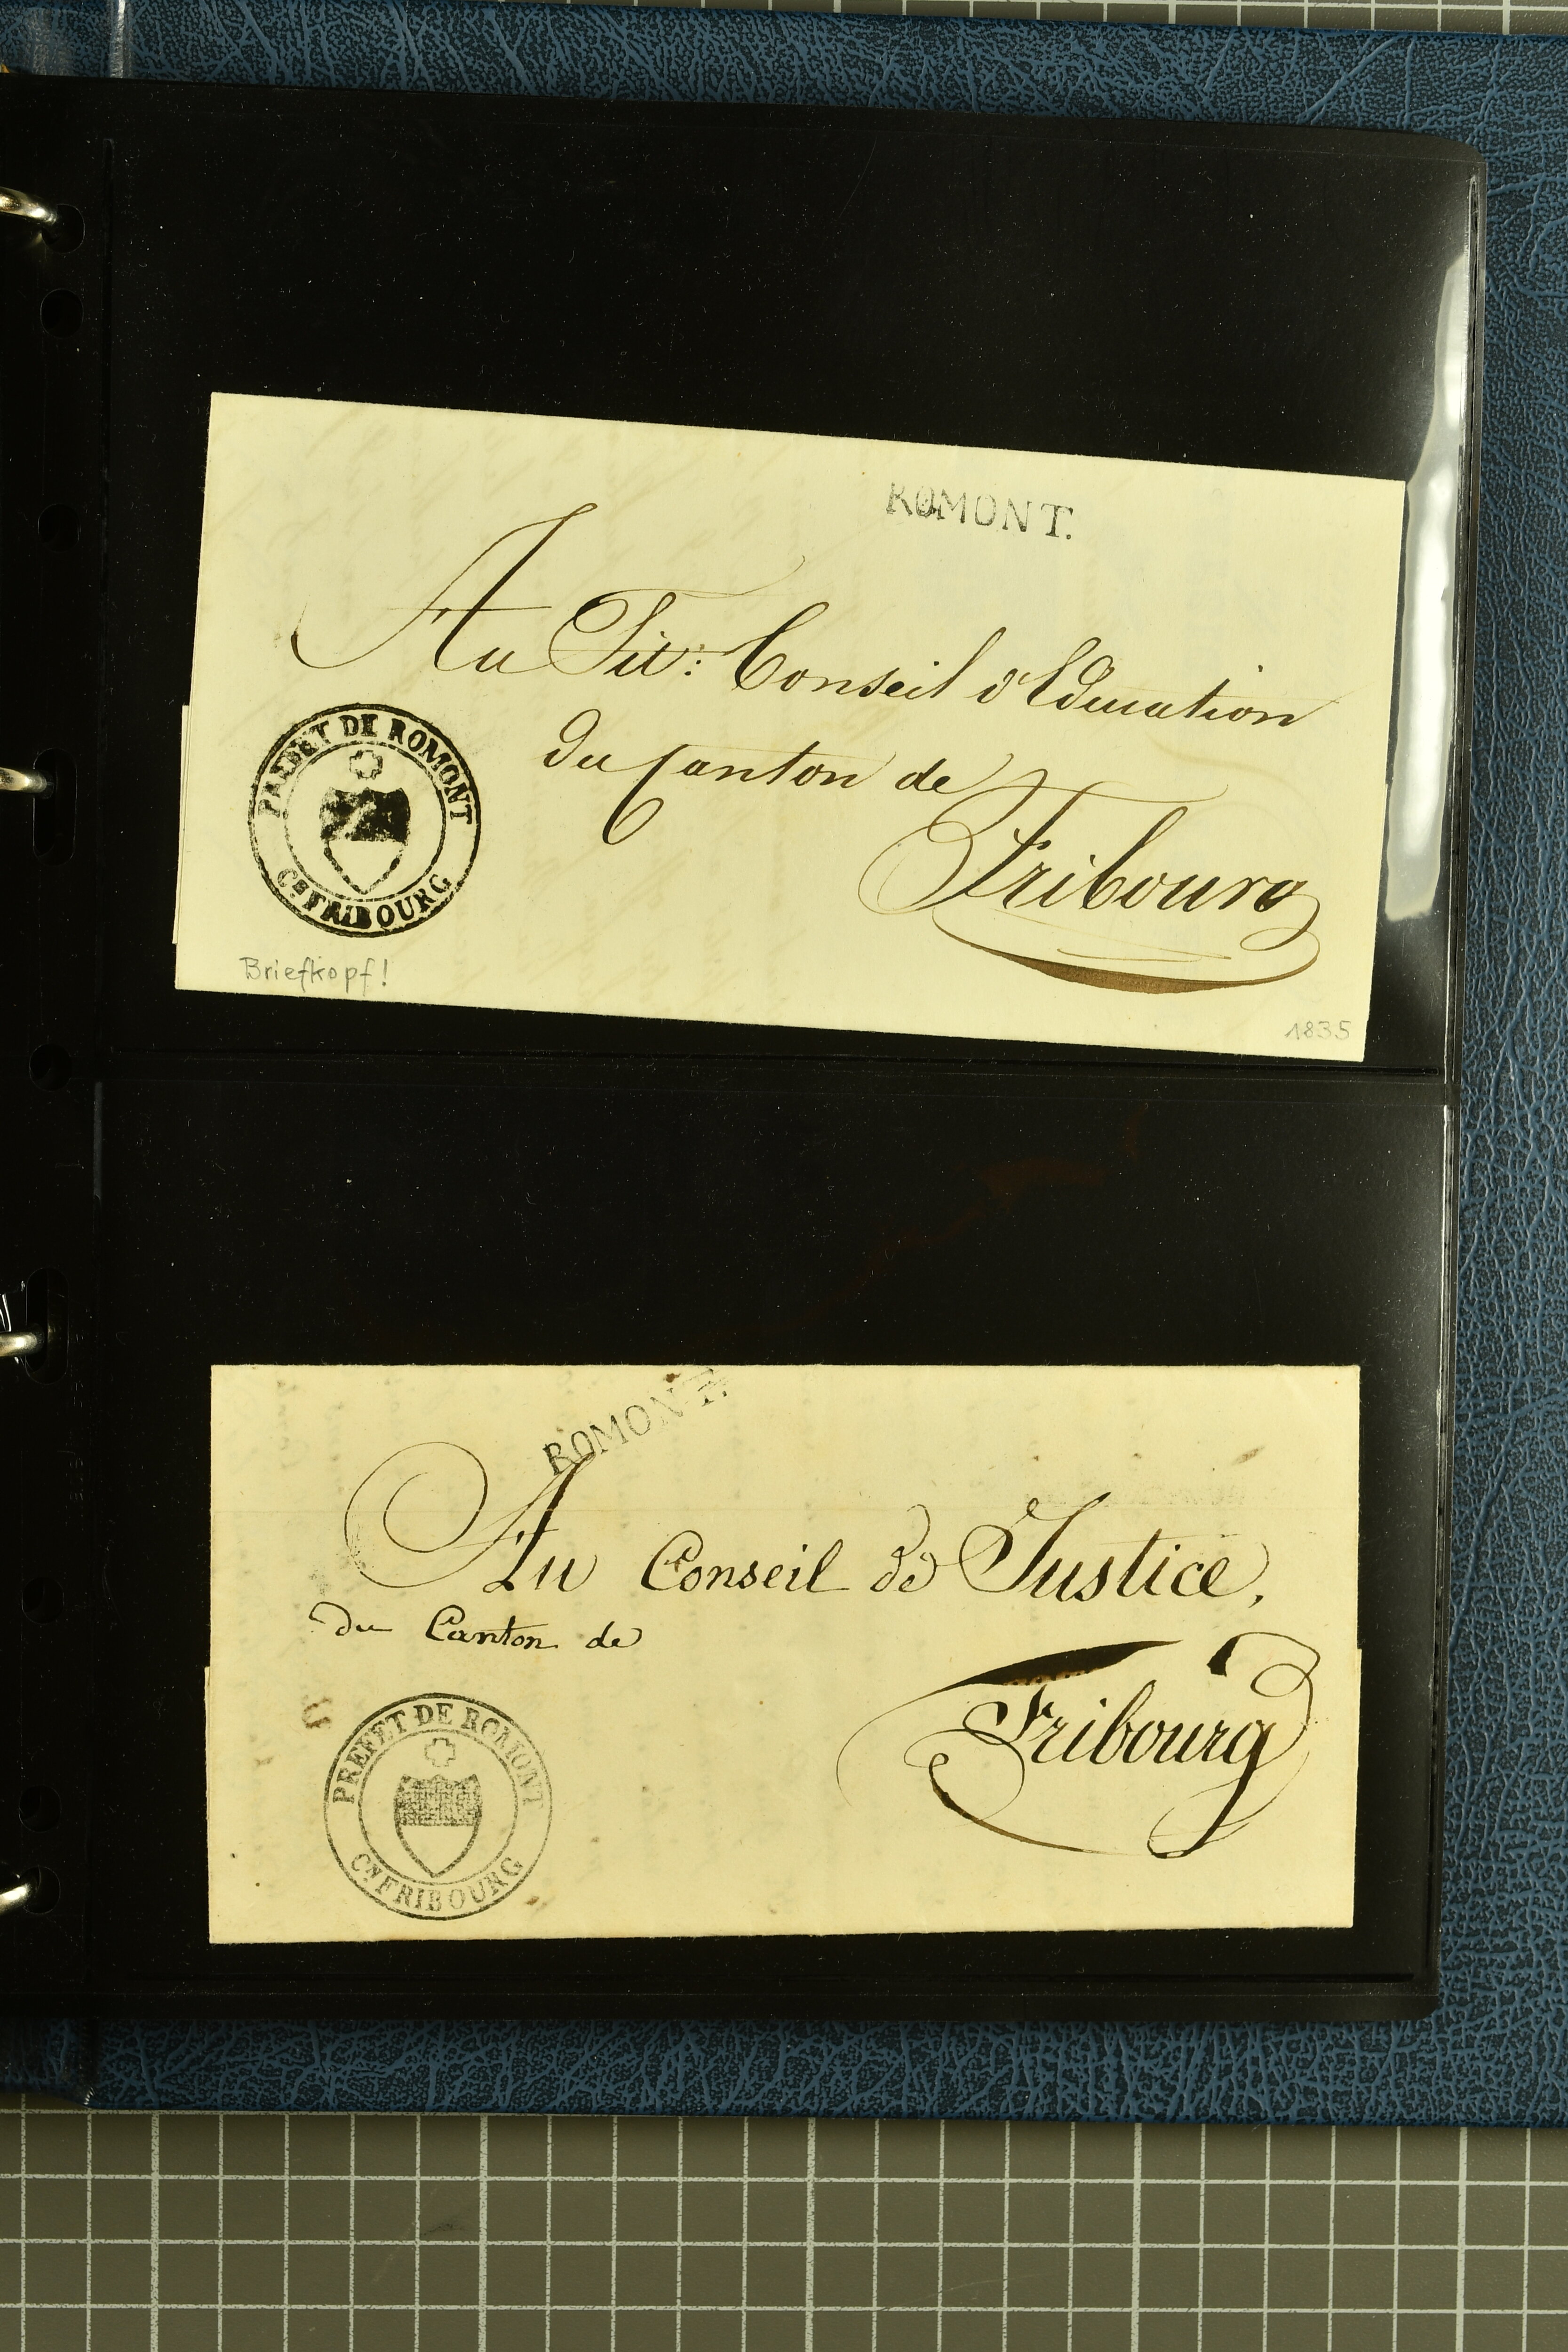 ROMONT.
Au Tit: Conseil d'Education
du Canton de
Fribourg
PREFET DE ROMONT
Cn FRIBOURG
Briefkopf!
1835
ROMONT.
Au Conseil de Justice,
du Canton de
Fribourg
PREFET DE ROMONT
Cn FRIBOURG